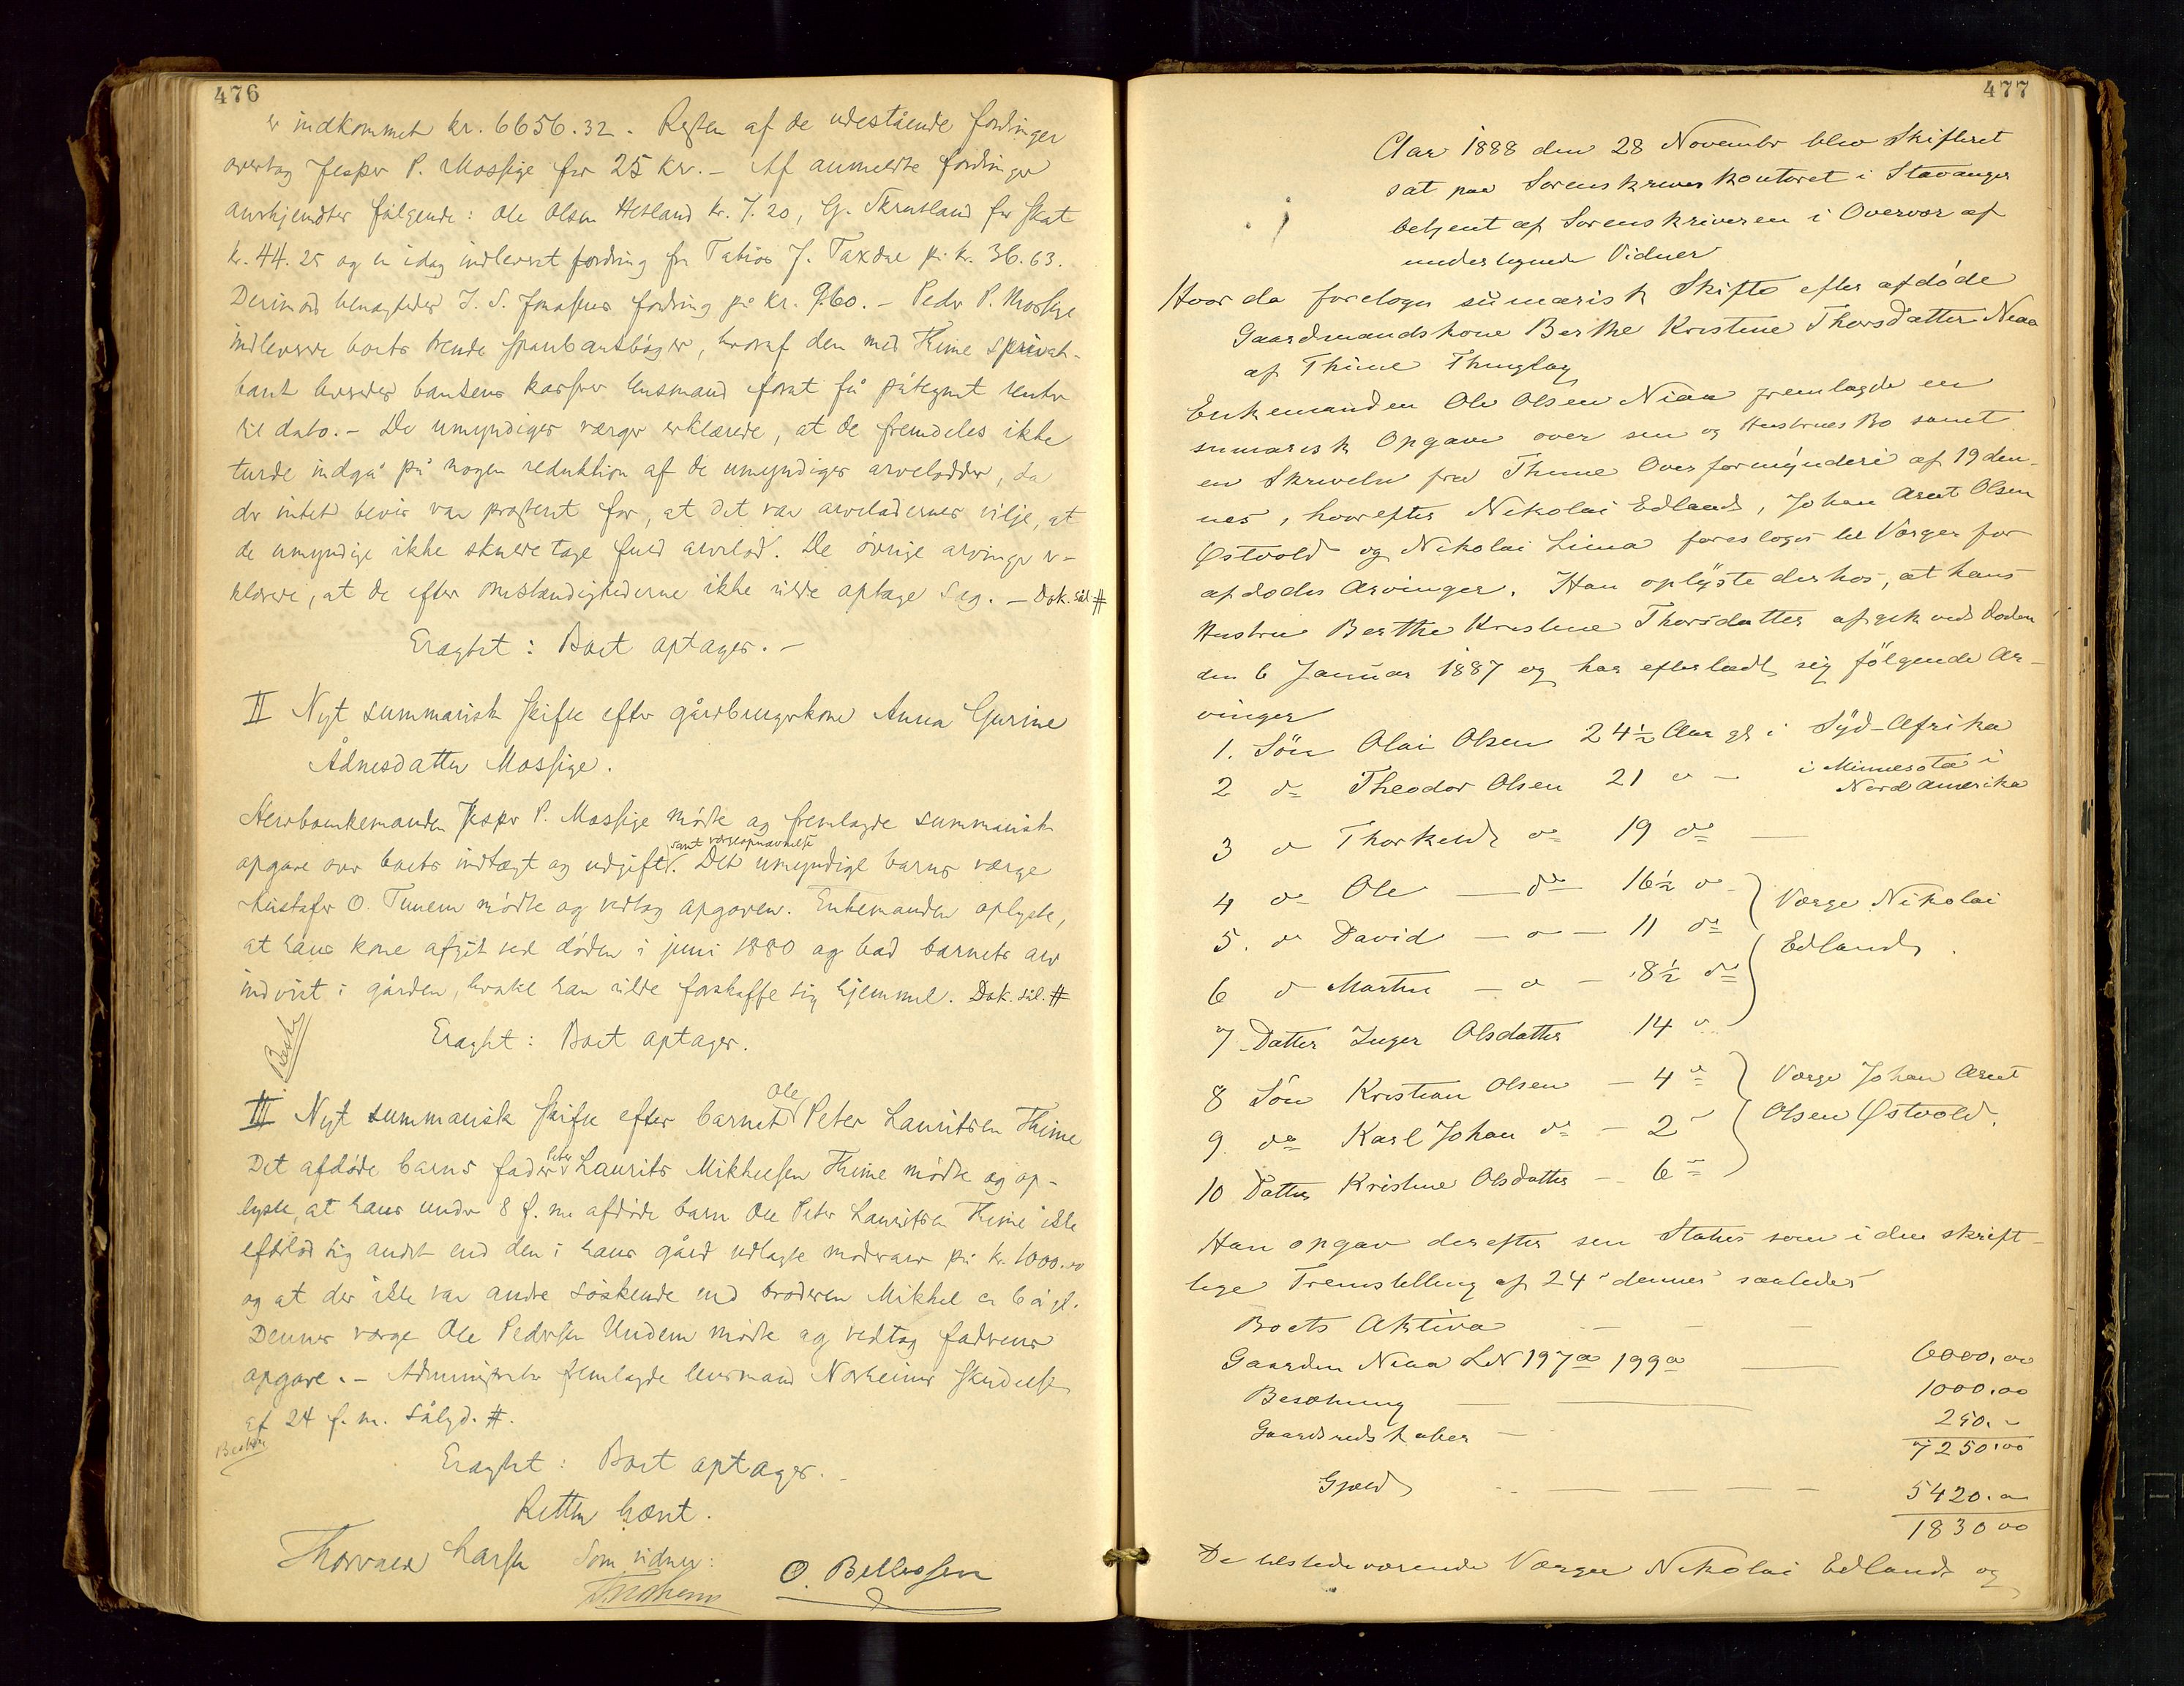 476
er indkommet kr. 6656.32. Resten af de udestående fordringer
overtog Jesper P. Mossige for 25 Kr. - Af anmeldte fordringer
anerkjendtes følgende: Ole Olsen Hetland kr. 7.20, G. Skrutland for skat
kr. 44.25 og en idag indleveret fordring fra Tobias J. Taxdal på kr. 36.63.
Derimod benægtedes J. S. Jonassens fordring på kr. 9.60. - Peder P. Mossige
indleverede boets trende sparebankbøger, hvoraf den med Thime sprivat-
bank leveredes bankens kasserer lensmand forat få påtegnet renter
til dato. - De umyndiges værger erklærede, at de fremdeles ikke
turde indgå på nogen reduktion af de umyndiges arvelodder, da
der intet bevis var præsteret for, at det var arveladernes vilje, at
de umyndige ikke skulde tage fuld arvelod. De øvrige arvinger er-
klærede, at de efter omstændighederne ikke vilde optage sag. - Dok. sål #
Eragtet: Boet optages. -
II Nyt summarisk skifte efter gårdbrugerkone Anna Gurine
Ådnesdatter Mossige.
Jesper P. Mossige mødte og fremlagde summarisk
samt værgeopnævnelse
opgave over boets indtægt og udgift. Det umyndige barns værge
Kristofer O. Tunem mødte og vedtog opgaven. Enkemanden oplyste,
at hans kone afgik ved døden i juni 1880 og bad barnets arv
indvist i gården, hvortil han vilde forskaffe sig hjemmel. Dok. sål. #
Eragtet: Boet optages.
Besk
Ole
III Nyt summarisk skifte efter barnet Peter Lauritsen Thime
Peder
Det afdøde barns fader Laurits Mikkelsen Thime mødte og op-
lyste, at hans under 8 f. m. afdøde barn Ole Peter Lauritsen Thime ikke
efterlod sig andet end den i hans gård udlagte mødrearv på kr. 1000.00
og at der ikke var andre søskende end broderen Mikkel ca 6 å gl.
Dennes værge Ole Pedersen Undem mødte og vedtog faderens
opgave. - Administrator fremlagde lensmand Norheims skrivelse
af 24 f. m. sålyd. #.
Besk
Eragtet: Boet optages. -
Retten hævet.
Thorvald Larsen Som vidner:
O. Bellesen
477
Aar 1888 den 28 Novembr blev Skifteret
sat paa Sorenskriverkontoret i Stavanger
betjent af Sorenskriveren i Overvær af
undertegnede Vidner
Hvor da foretoges sumarisk Skifte efter afdøde
Gaardmandskone Berthe Kristine Thorsdatter Niaa
af Thime Thinglag
Enkemanden Ole Olsen Niaa fremlagde en
sumarisk Opgave over sin og Hustrues Bo samt
en Skrivelse fra Thime Overformynderi af 19 den-
nes, hvorefter Nikolai Edland, Johan Arnt Olsen
Østvold og Nikolai Lima foresloges til Værger for
afdødes Arvinger. Han oplyste derhos, at hans
Hustru Berthe Kristine Thorsdatter afgik ved Døden
den 6 Januar 1887 og har efterladt sig følgende Ar-
vinger
1. Søn Olai Olsen 24 1/2 Aar gl i Syd-Afrika
2 do Theodor Olsen 21 do - i Minnesota i
Nord Amerika
3 do Thorkeld do 19 do —
4 do Ole — do — 16 1/2 do Værge Nikolai
5. do David — do — 11 do Edland.
6 do Martin — do — 8 1/2 do
7 Datter Inger Olsdatter 14 do
8 Søn Kristian Olsen — 4 do Værge Johan Arnt
9. do Karl Johan do — 2 do Olsen Østvold.
10 Datter Kristine Olsdatter — 6 do
Han opgav derefter sin Status som i den skrift-
lige Fremstilling af 24 dennes saaledes
Boets Aktiva — — —
Gaarden Niaa LN 197a 199a — 6000.00
Besætning — — 1000.00
Gaardsredskaber — 250.-
7250.00
Gjæld — — — 5420.00
1830.00
De tilstedeværende Værger Nikolai Edland og